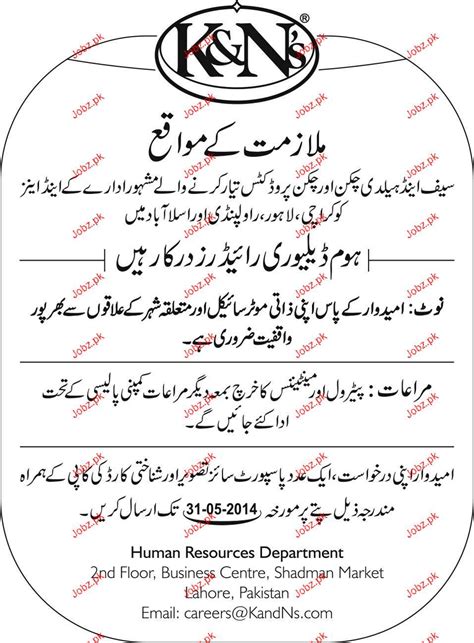 K&N's®
ملازمت کے مواقع
سیف اینڈ ہیلدی چکن اور چکن پروڈکٹس تیار کرنے والے مشہور ادارے کے اینڈ اینز
کو کراچی، لاہور، راولپنڈی اور اسلام آباد میں
ہوم ڈیلیوری رائیڈرز درکار ہیں
نوٹ: امیدوار کے پاس اپنی ذاتی موٹر سائیکل اور متعلقہ شہر کے علاقوں سے بھرپور
واقفیت ضروری ہے۔
مراعات: پیٹرول اور مینٹیننس کا خرچ بمعہ دیگر مراعات کمپنی پالیسی کے تحت
ادا کئے جائیں گے۔
امیدوار اپنی درخواست، ایک عدد پاسپورٹ سائز تصویر اور شناختی کارڈ کی کاپی کے ہمراہ
مندرجہ ذیل پتے پر مورخہ 31-05-2014 تک ارسال کریں۔
Human Resources Department
2nd Floor, Business Centre, Shadman Market
Lahore, Pakistan
Email: careers@KandNs.com
Jobz.pk